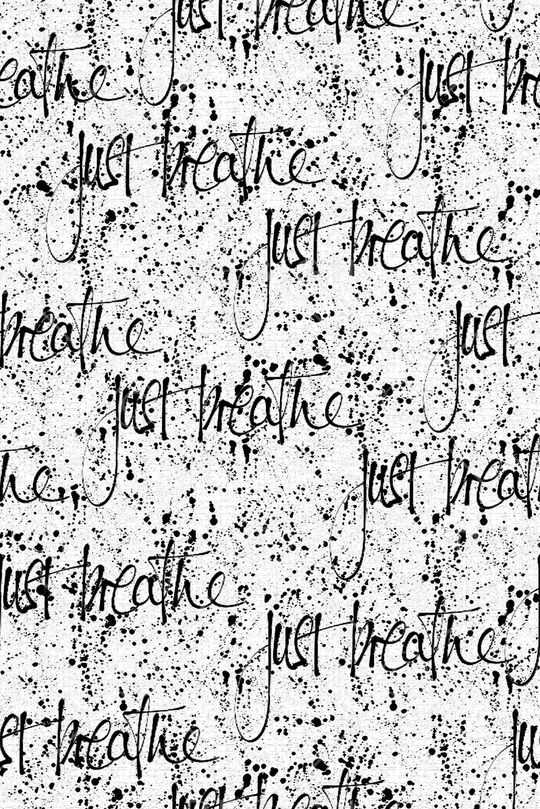 just breathe
eathe
just bre
just breathe
just breathe
breathe
just
just breathe
just breat
he
just breathe
just breathe
st breathe
ju
just breathe